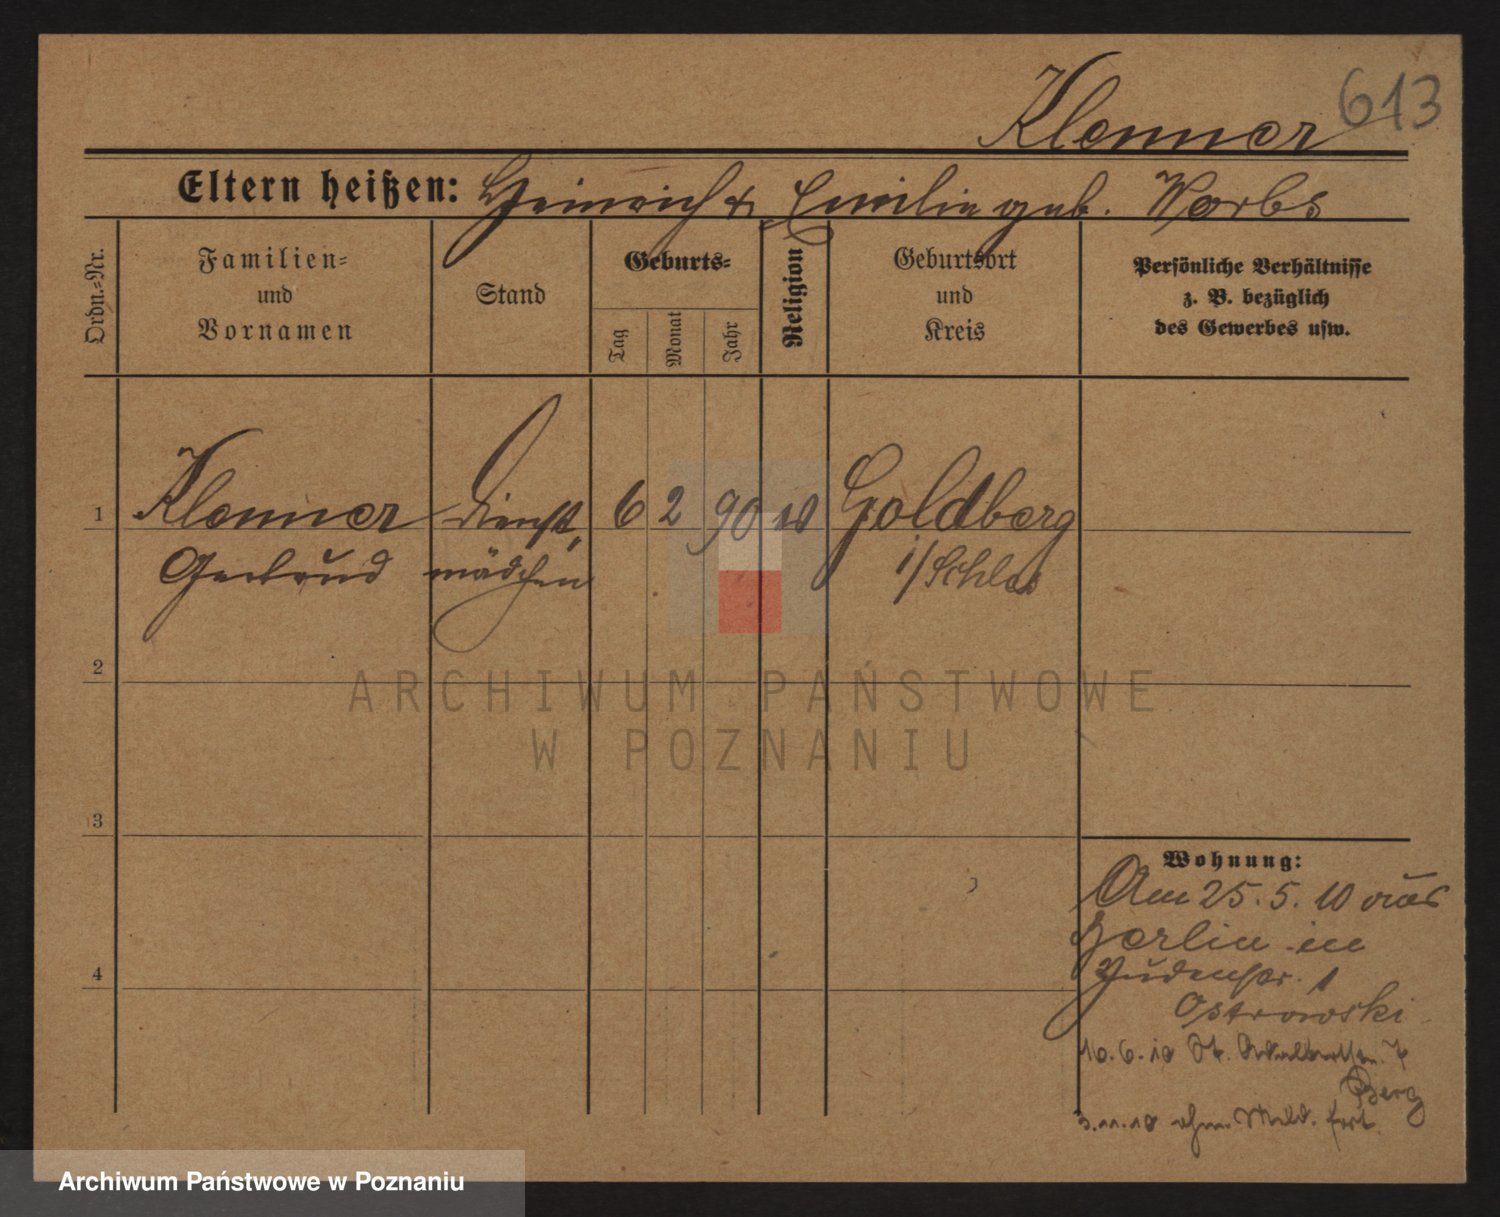 613
Klenner
Eltern heißen: Heinrich & Emilie geb. Worbs
Ordn.-Nr.
Familien-
und
Vornamen
Stand
Geburts-
Tag
Monat
Jahr
Religion
Geburtsort
und
Kreis
Persönliche Verhältnisse
z. B. bezüglich
des Gewerbes usw.
1 Klenner Dienst, 6 2 90 Goldberg
Gertrud mädchen i/Schles
2
ARCHIWUM PAŃSTWOWE
W POZNANIU
3
Wohnung:
Am 25. 5. 10 aus
Berlin in
4
Judenstr. 1
Ostrowski
10. 6. 10 St. Adalbertstr. 7
Berg
3. 11. 10 ohne Meld. fort.
Archiwum Państwowe w Poznaniu